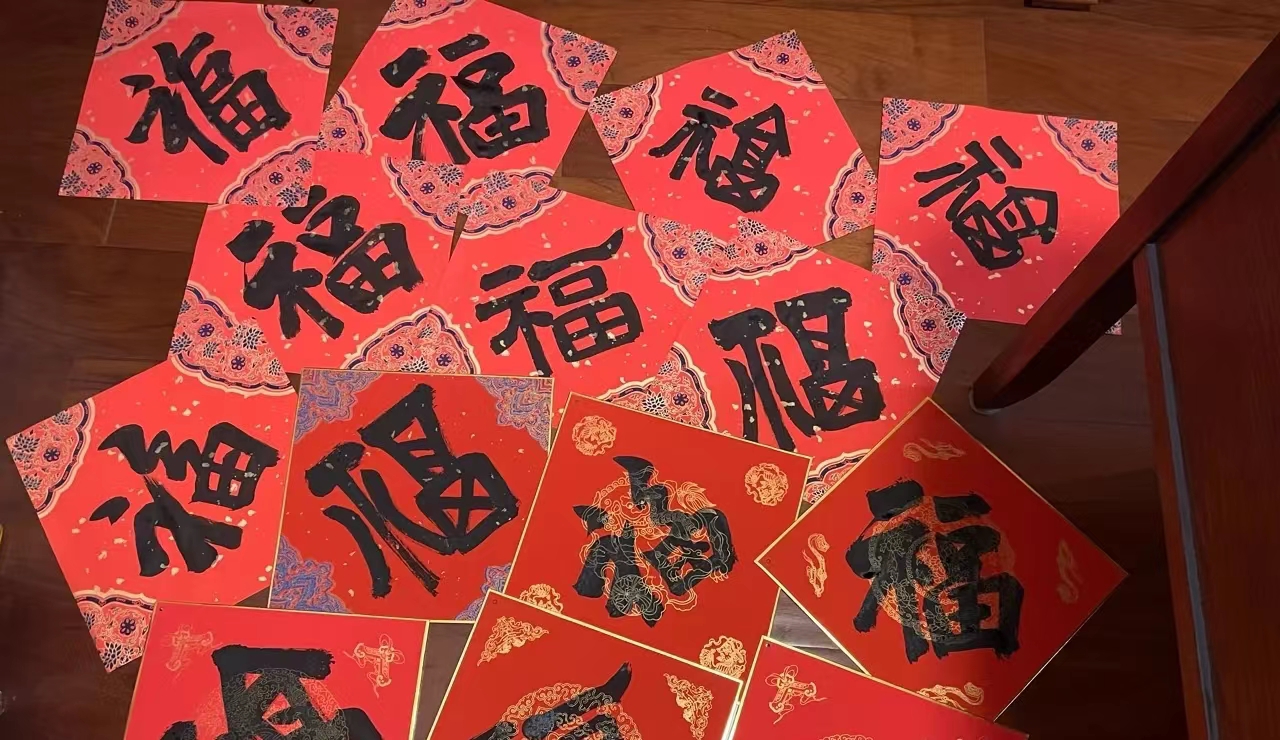 福
福
福
福
福
福
福
福
福
福
福